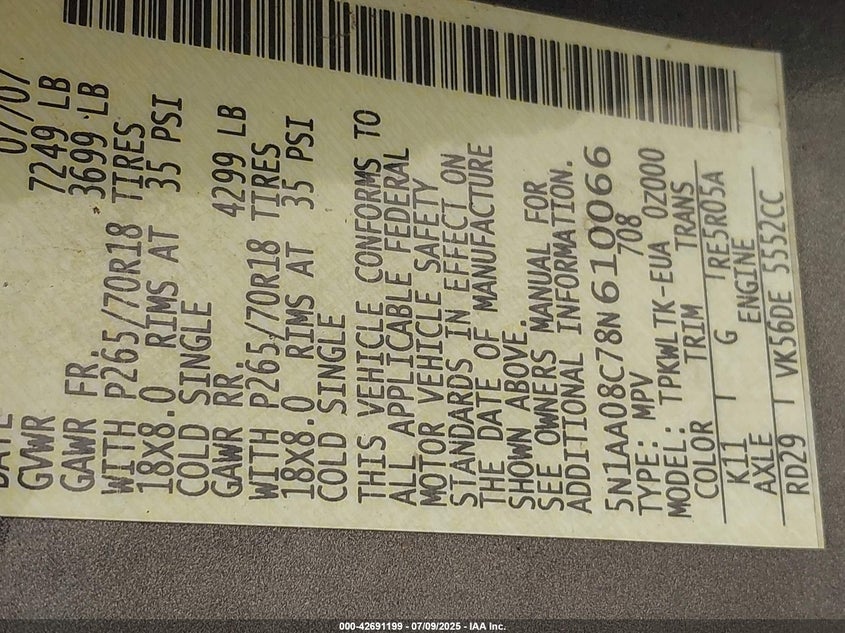 DATE 07/07
GVWR 7249 LB
GAWR FR. 3699 LB
WITH P265/70R18 TIRES
18X8.0 RIMS AT 35 PSI
COLD SINGLE
GAWR RR. 4299 LB
WITH P265/70R18 TIRES
18X8.0 RIMS AT 35 PSI
COLD SINGLE
THIS VEHICLE CONFORMS TO
ALL APPLICABLE FEDERAL
MOTOR VEHICLE SAFETY
STANDARDS IN EFFECT ON
THE DATE OF MANUFACTURE
SHOWN ABOVE.
SEE OWNERS MANUAL FOR
ADDITIONAL INFORMATION.
5N1AA08C78N610066
TYPE: MPV 708
MODEL: TPKWLTK-EUA 0Z000
COLOR TRIM TRANS
K11 G RE5R05A
AXLE ENGINE
RD29 VK56DE 5552CC
000-42691199 - 07/09/2025 - IAA Inc.